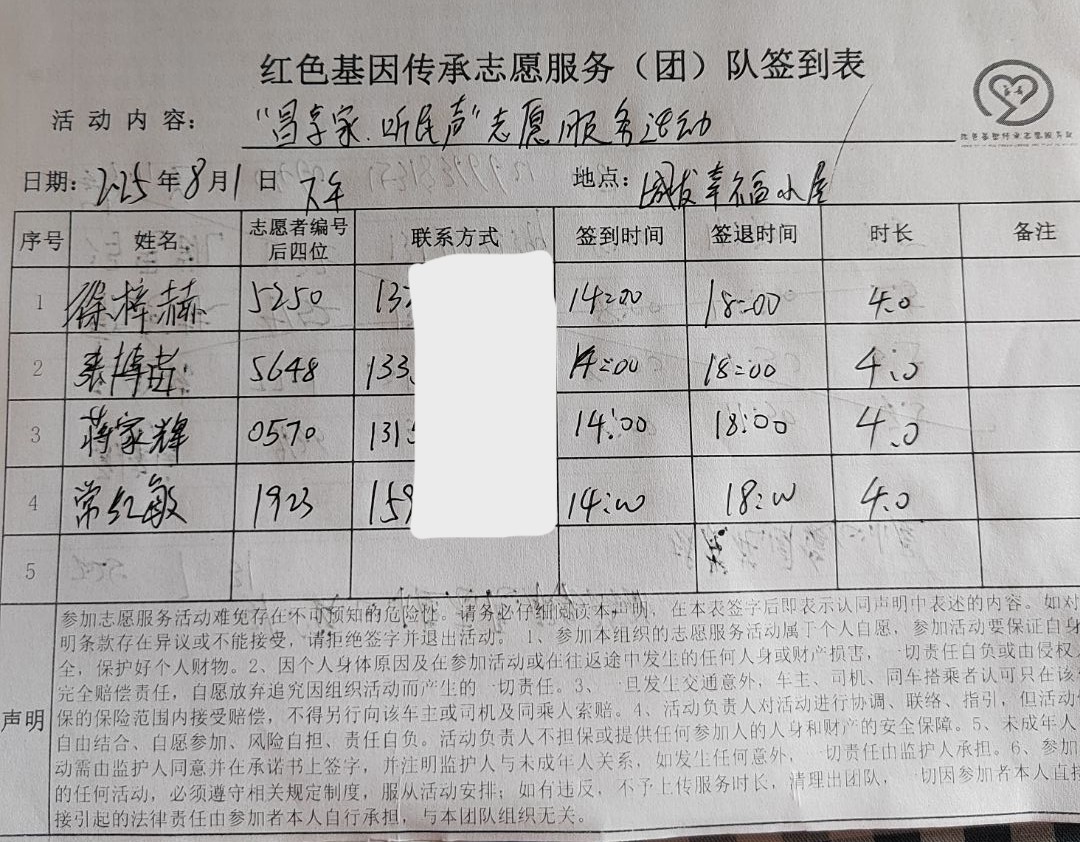 红色基因传承志愿服务（团）队签到表
活动内容："昌享家.听民声"志愿服务活动
日期：2025年8月1日 下午 地点：城发幸福小屋
序号 姓名 志愿者编号后四位 联系方式 签到时间 签退时间 时长 备注
1 徐梓赫 5250 13 14:00 18:00 4.0
2 5648 133 14:00 18:00 4.0
3 蒋家辉 0570 131 14:00 18:00 4.0
4 常红敏 1923 159 14:00 18:00 4.0
5
声明
参加志愿服务活动难免存在不可预知的危险性。请务必仔细阅读本声明，在本表签字后即表示认同声明中表述的内容。如对
明条款存在异议或不能接受，请拒绝签字并退出活动。 1、参加本组织的志愿服务活动属于个人自愿，参加活动要保证自身
全，保护好个人财物。2、因个人身体原因及在参加活动或在往返途中发生的任何人身或财产损害，一切责任自负或由侵权
完全赔偿责任，自愿放弃追究因组织活动而产生的一切责任。3、一旦发生交通意外，车主、司机、同车搭乘者认可只在该
保的保险范围内接受赔偿，不得另行向该车主或司机及同乘人索赔。4、活动负责人对活动进行协调、联络、指引，但活动
自由结合、自愿参加、风险自担、责任自负。活动负责人不担保或提供任何参加人的人身和财产的安全保障。5、未成年人
动需由监护人同意并在承诺书上签字，并注明监护人与未成年人关系，如发生任何意外，一切责任由监护人承担。6、参加
的任何活动，必须遵守相关规定制度，服从活动安排；如有违反，不予上传服务时长，清理出团队，一切因参加者本人直接
接引起的法律责任由参加者本人自行承担，与本团队组织无关。